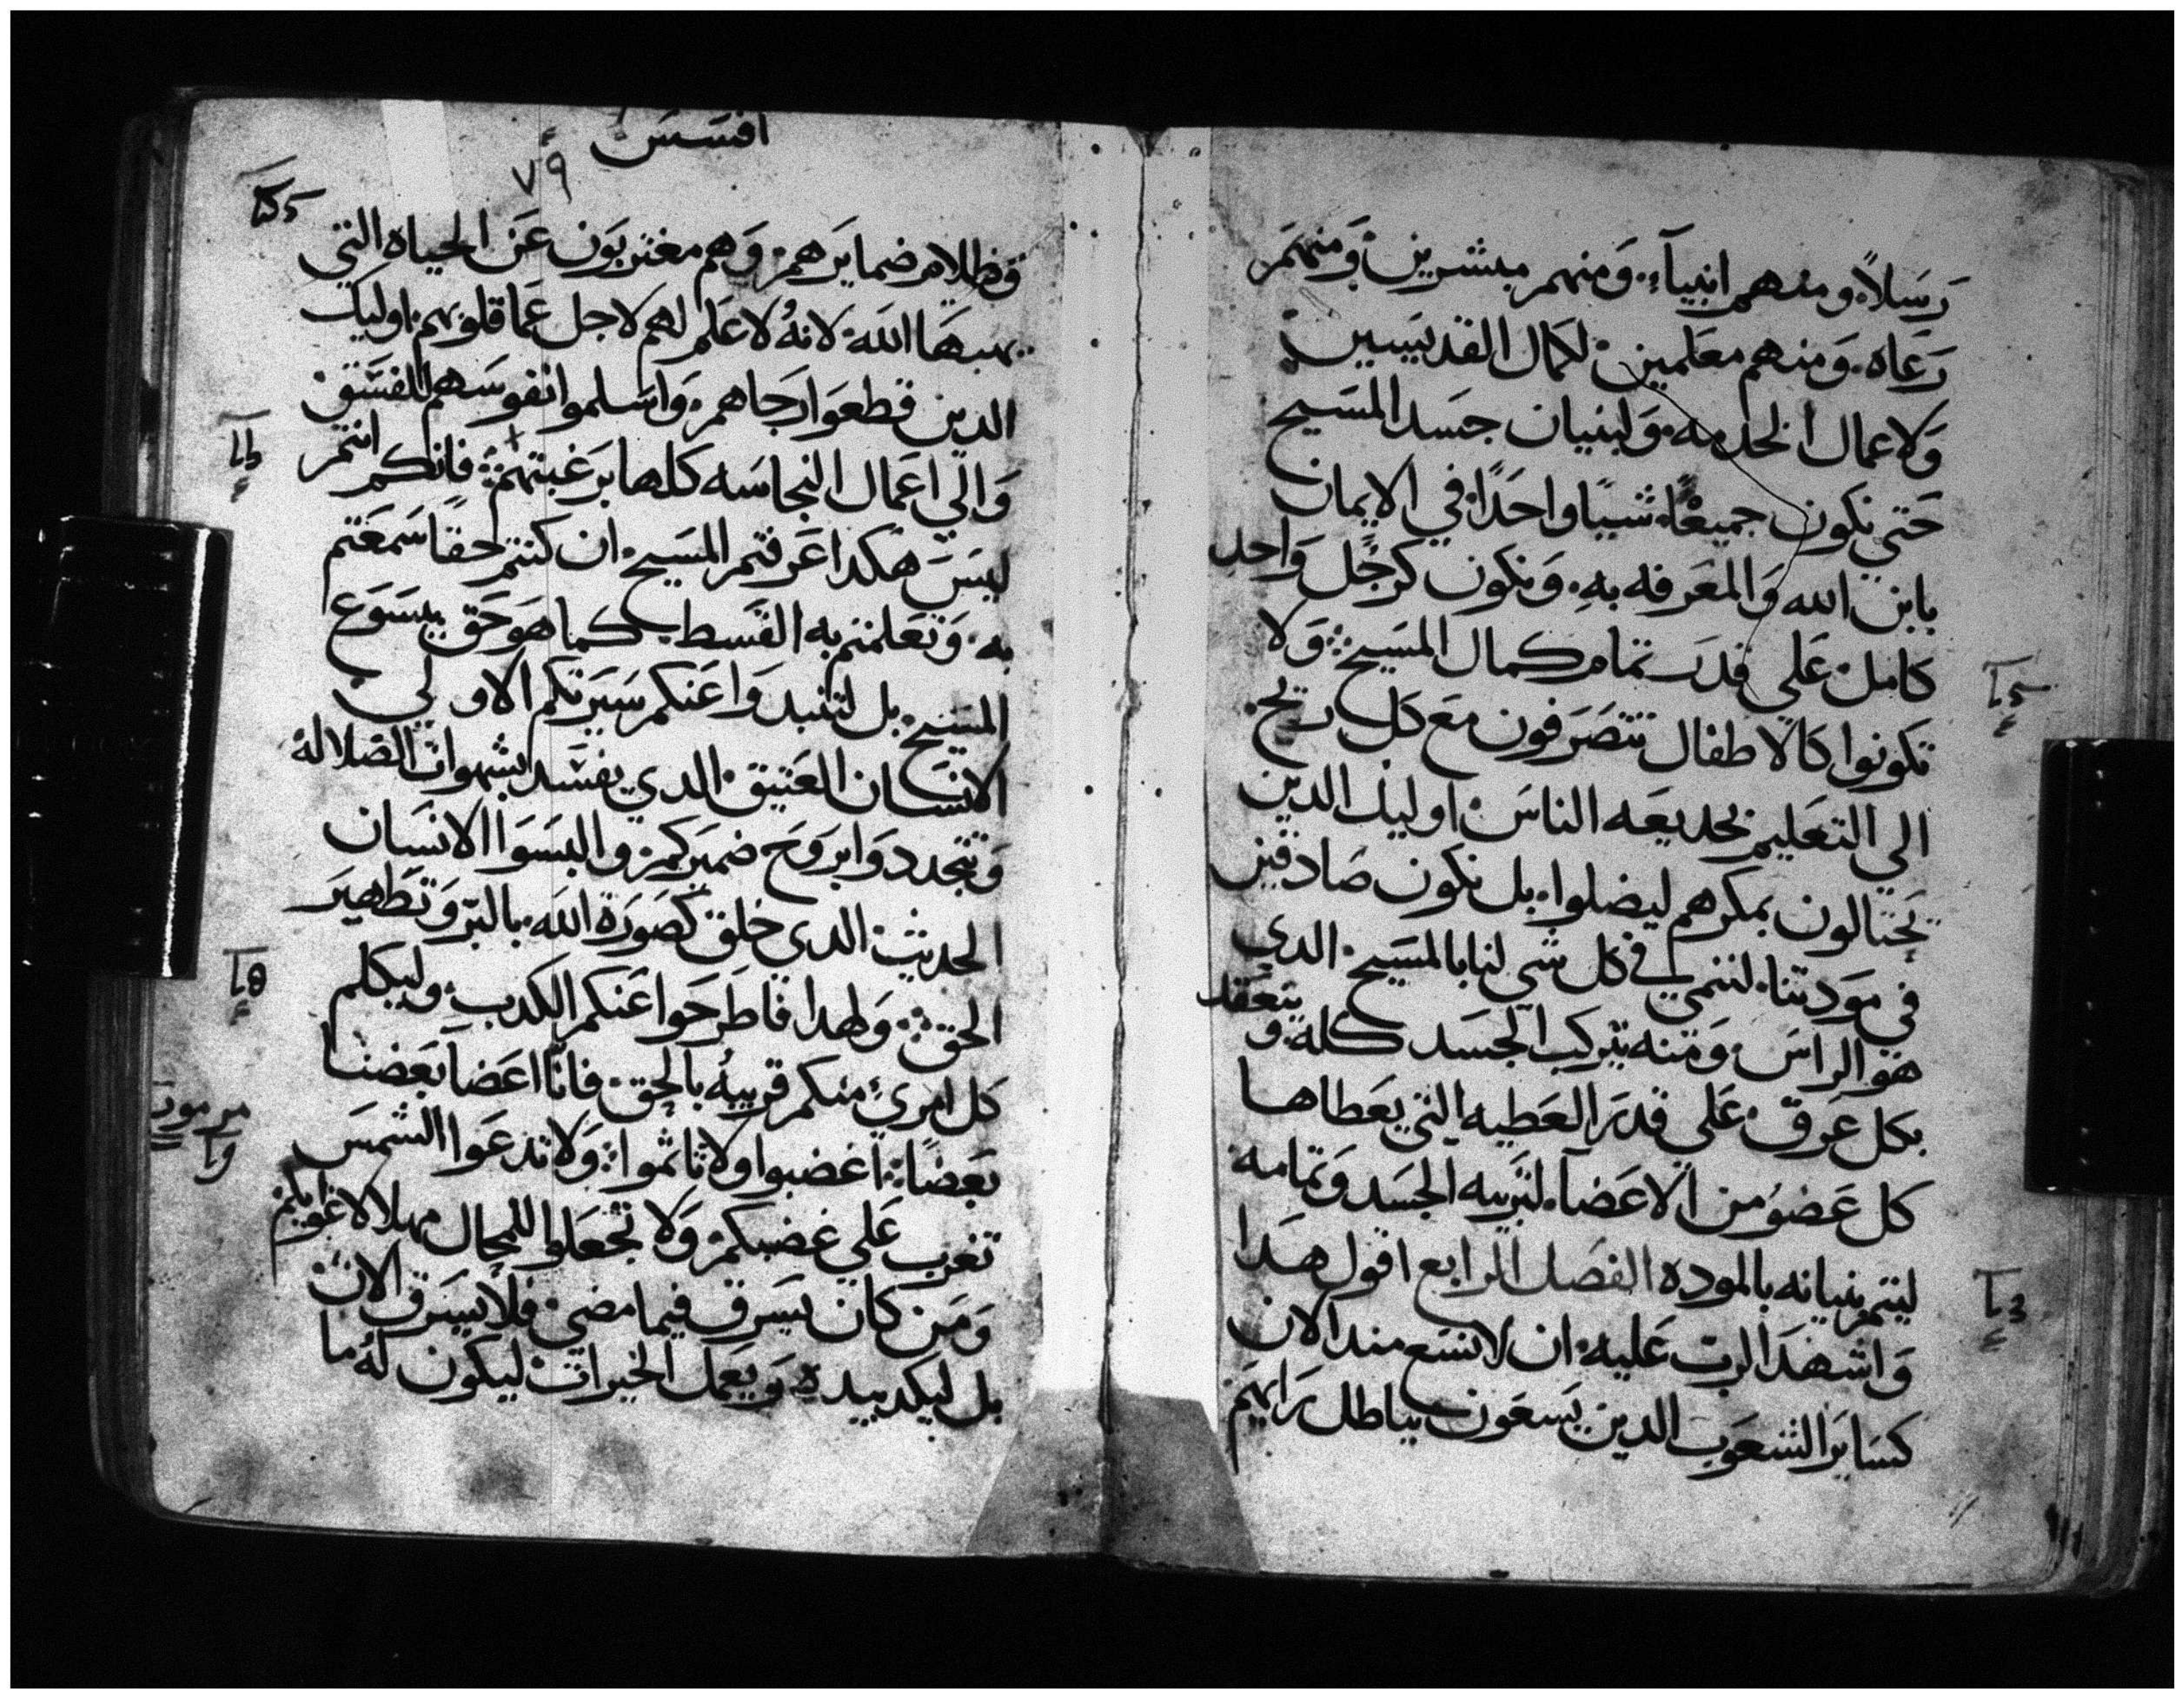 رسلاً. ومنهم انبيآء. ومنهم مبشرين. ومنهم
رعاه. ومنهم معلمين. لكمال القديسين
ولاعمال الخدمه. ولبنيان جسد المسيح
حتي نكون جميعًا. شيًيا واحدًا. في الايمان
بابن الله والمعرفه بهِ. ونكون كرجُل واحد
كامل. علي قدر تمام كمال المسيح. ولا
تكونوا كالاطفال تتصرفون مع كل ريح.
الي التعليم بخديعه الناس. اوليك الدين
يختالون بمكرهم ليضلوا. بل نكون صادقين
في مودتنا. لننمي في كل شي لنا بالمسيح. الدي
هو الراس. ومنه يتركب الجسد كله. و يتعقد
بكل عرق. علي قدر العطيه التي يعطاها
كل عضوُ من الاعضآ. لتربيه الجسد وتمامه
ليتم بنيانه بالموده الفصل الرابع اقول هدا
واشهد الرب عليه. ان لا تسع مند الان
كساير الشعوب الدين يسعون بباطل رايهم
افسس
٧٩
وظلام ضمايرهم. وهم مغتربون عن الحياه التي
يهبها الله. لانهُ لا علم لهم لاجل عما قلوبهم. اوليك
الدين قطعوا رجاهم. واسلموا نفوسهم للفسق
والي اعمال النجاسه كلها برغبتهم. فانكم انتم
ليس هكدا عرفتم المسيح. ان كنتم حقًا سمعتم
به. وتعلمتم به القسط كما هو حق بيسوع
المسيح. بل لتنبدوا عنكم سيرتكم الاولي
الانسان العتيق. الدي يفسد بشهوات الضلاله
وتتجددوا بروح ضميركم. والبسوا الانسان
الجديث. الدي خلق كصورة الله. بالبر وتطهير
الحق. ولهدا فاطرحوا عنكم الكدب. وليكلم
كل امريٍ منكم قريبهُ بالحق. فانّا اعضا بعضنا
بعضًا. اغضبوا ولا تاثموا. ولا تدعوا الشمس
تغرب علي غضبكم. ولا تجعلوا للمحال مهلا لاغوايكم
ومن كان يسرق فيما مضي. فلا يسرق الان
بل ليكد بيديهِ ويعمل الخيرات. ليكون لهُ ما
مزمود